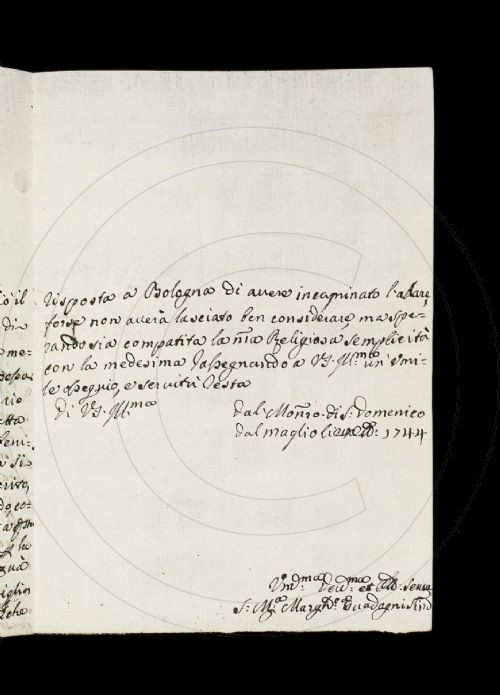 risposta a Bologna di avere incaminato l'affare,
forse non averà lasciato ben considerare, ma spe-
rando sia compatita la nr̃a Religiosa semplicità
con la medesima rassegnando a V.S. Ill.ma un'umi-
le ossequio, e servitù resta
di V.S. Ill.ma
dal Mon.ro di S. Domenico
dal maglio li 1744
Um.ma Dev.ma et Serva
S. M.a Margh. Guadagni Sind